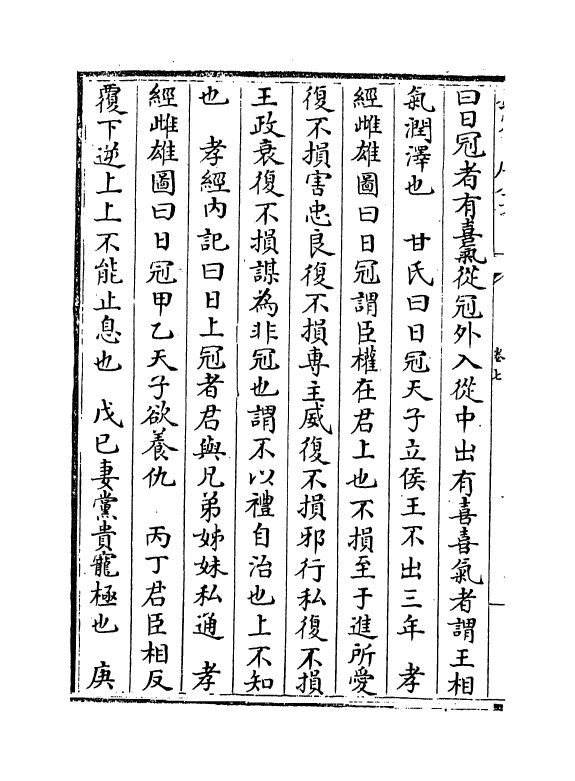 曰日冠者有喜氣從冠外入從中出有喜喜氣者謂王相
氣潤澤也　甘氏曰日冠天子立侯王不出三年　孝
經雌雄圖曰日冠謂臣權在君上也不損至于進所愛
復不損害忠良復不損專主威復不損邪行私復不損
王政衰復不損謀為非冠也謂不以禮自治也上不知
也　孝經內記曰日上冠者君與兄弟姊妹私通　孝
經雌雄圖曰日冠甲乙天子欲養仇　丙丁君臣相反
覆下逆上上不能止息也　戊巳妻黨貴寵極也　庚
卷七